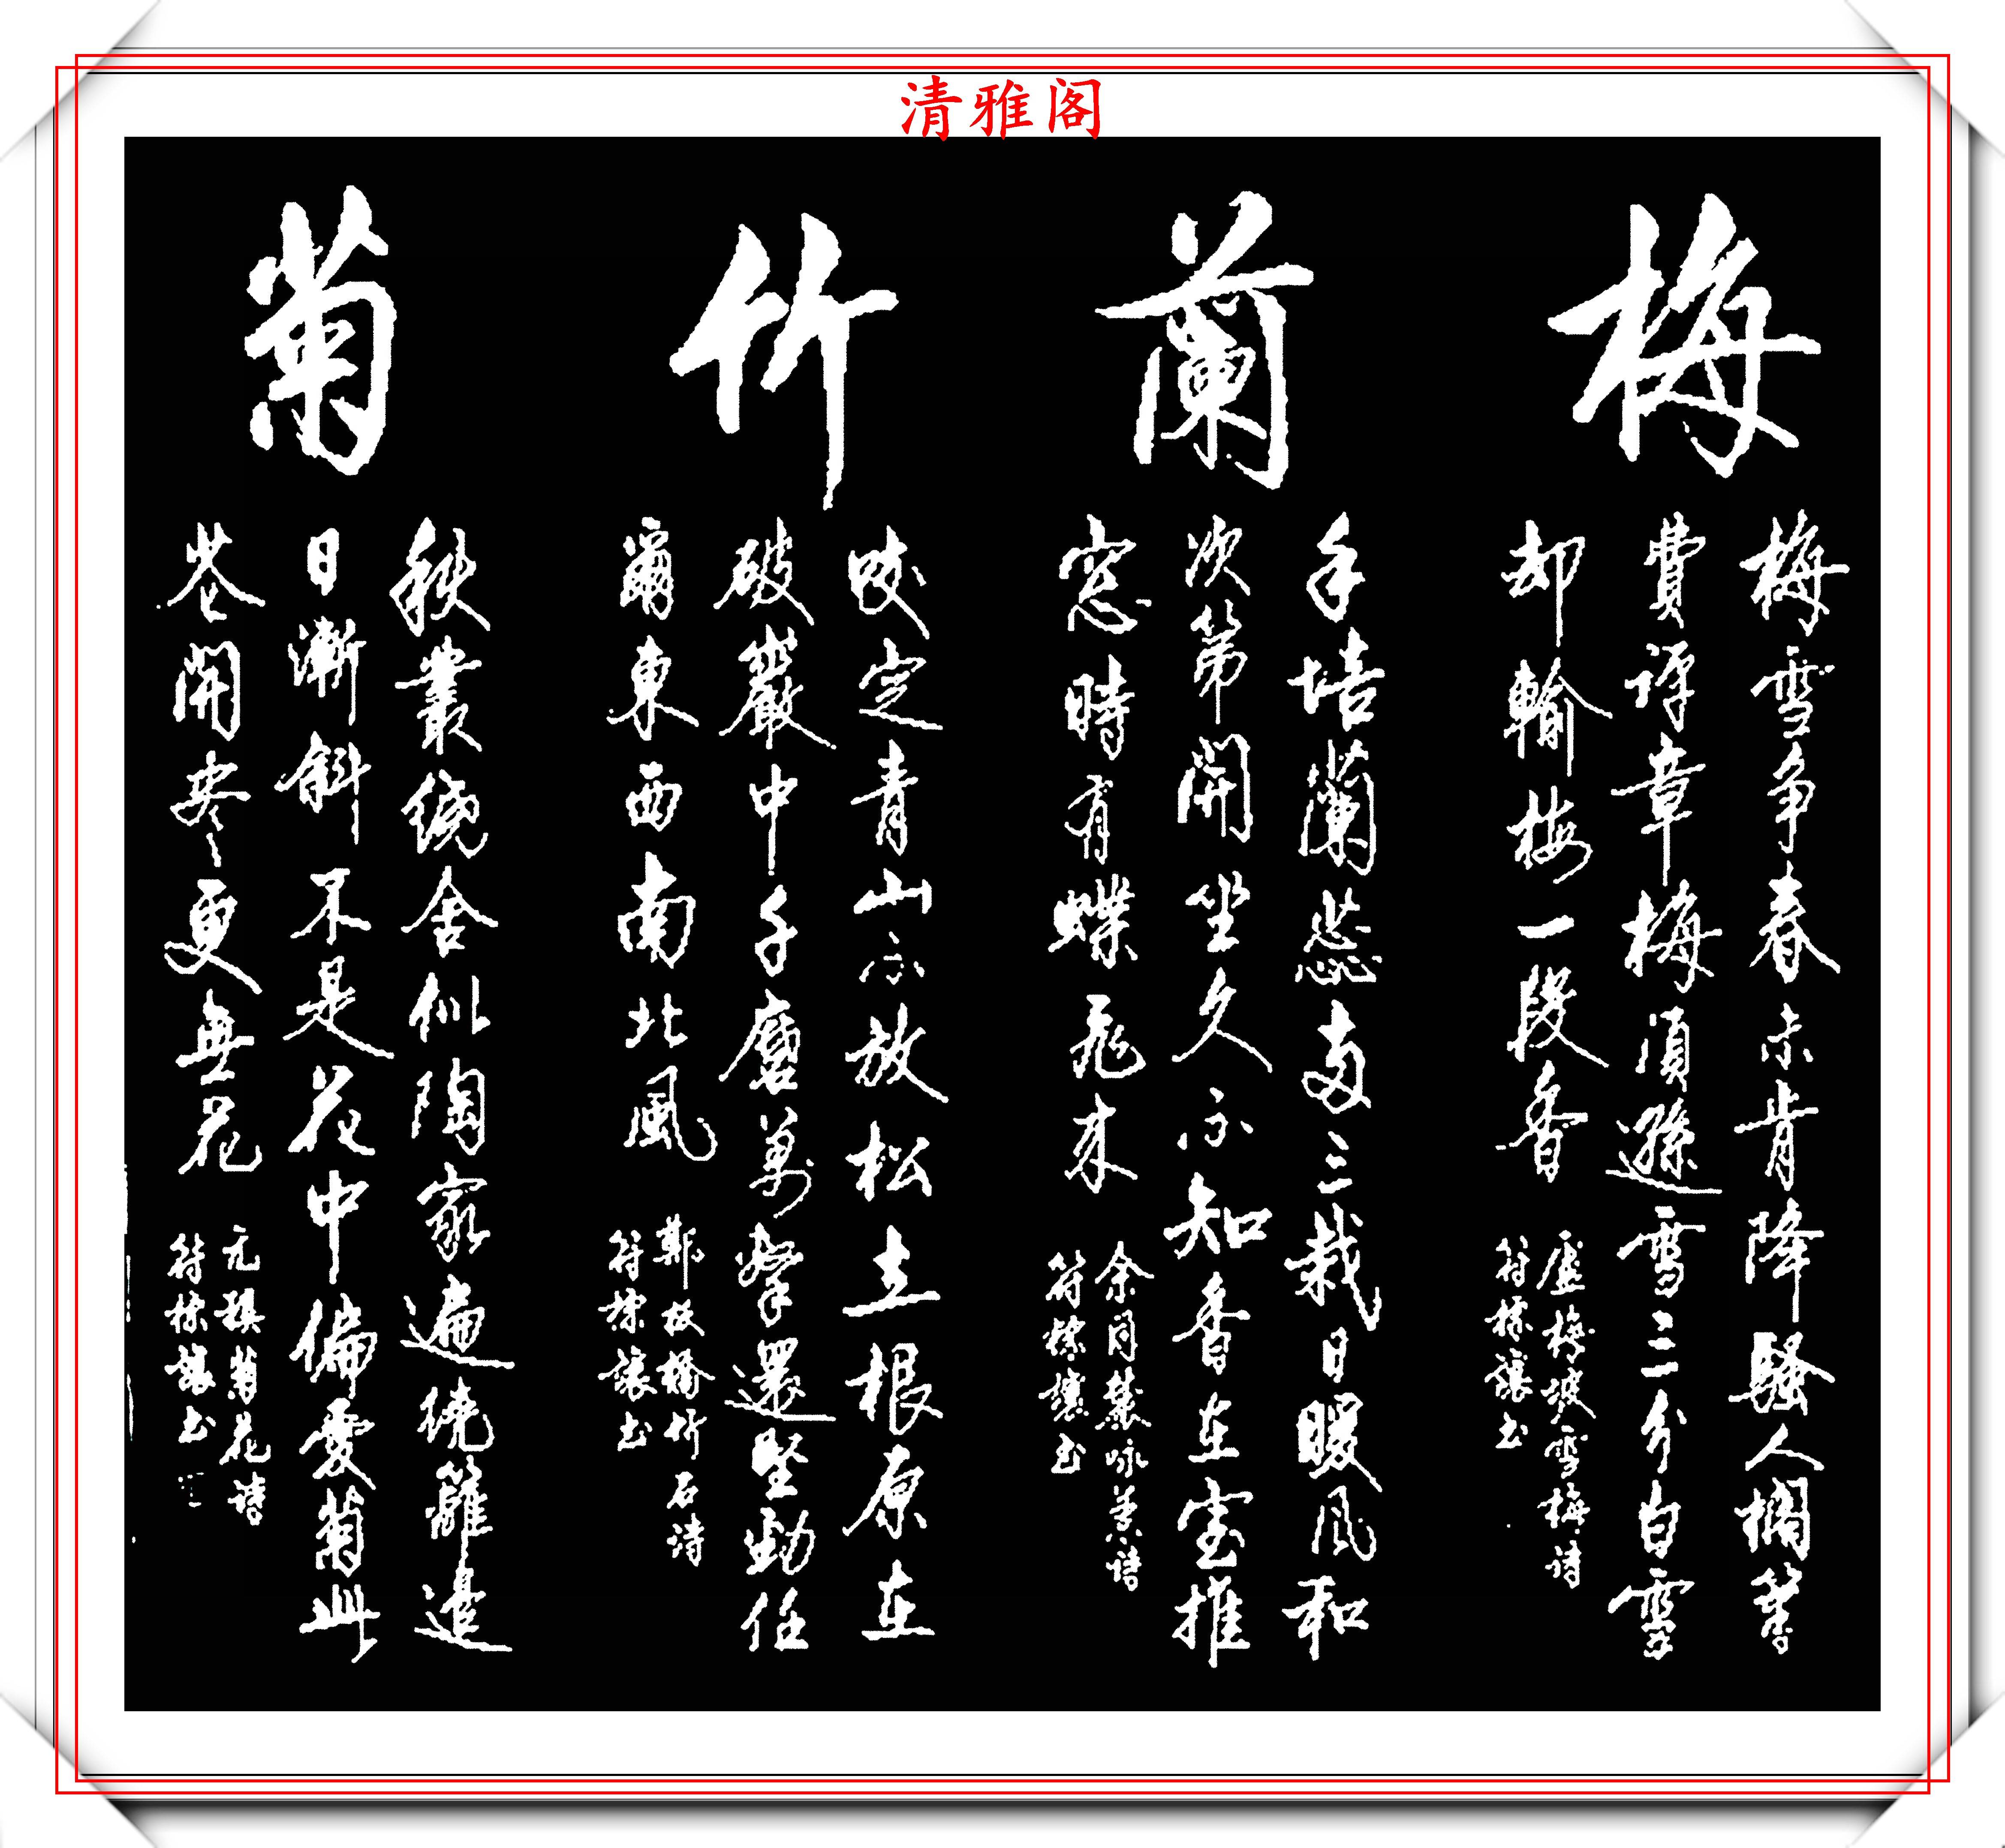 清雅阁
梅
梅雪争春未肯降騷人擱筆
費評章梅須遜雪三分白雪
却輸梅一段香
盧梅坡雪梅詩
符樣讓书
蘭
手培蘭蕊兩三栽日暖風和
次第開坐久不知香在室推
窓時有蝶飛来
余同麓咏蘭詩
符樣讓书
竹
咬定青山不放松立根原在
破巖中千磨萬擊還堅勁任
爾東西南北風
鄭板橋竹石詩
符樣讓书
菊
秋叢繞舍似陶家遍繞籬邊
日漸斜不是花中偏愛菊此
花開尽更無花
元稹菊花詩
符樣讓书